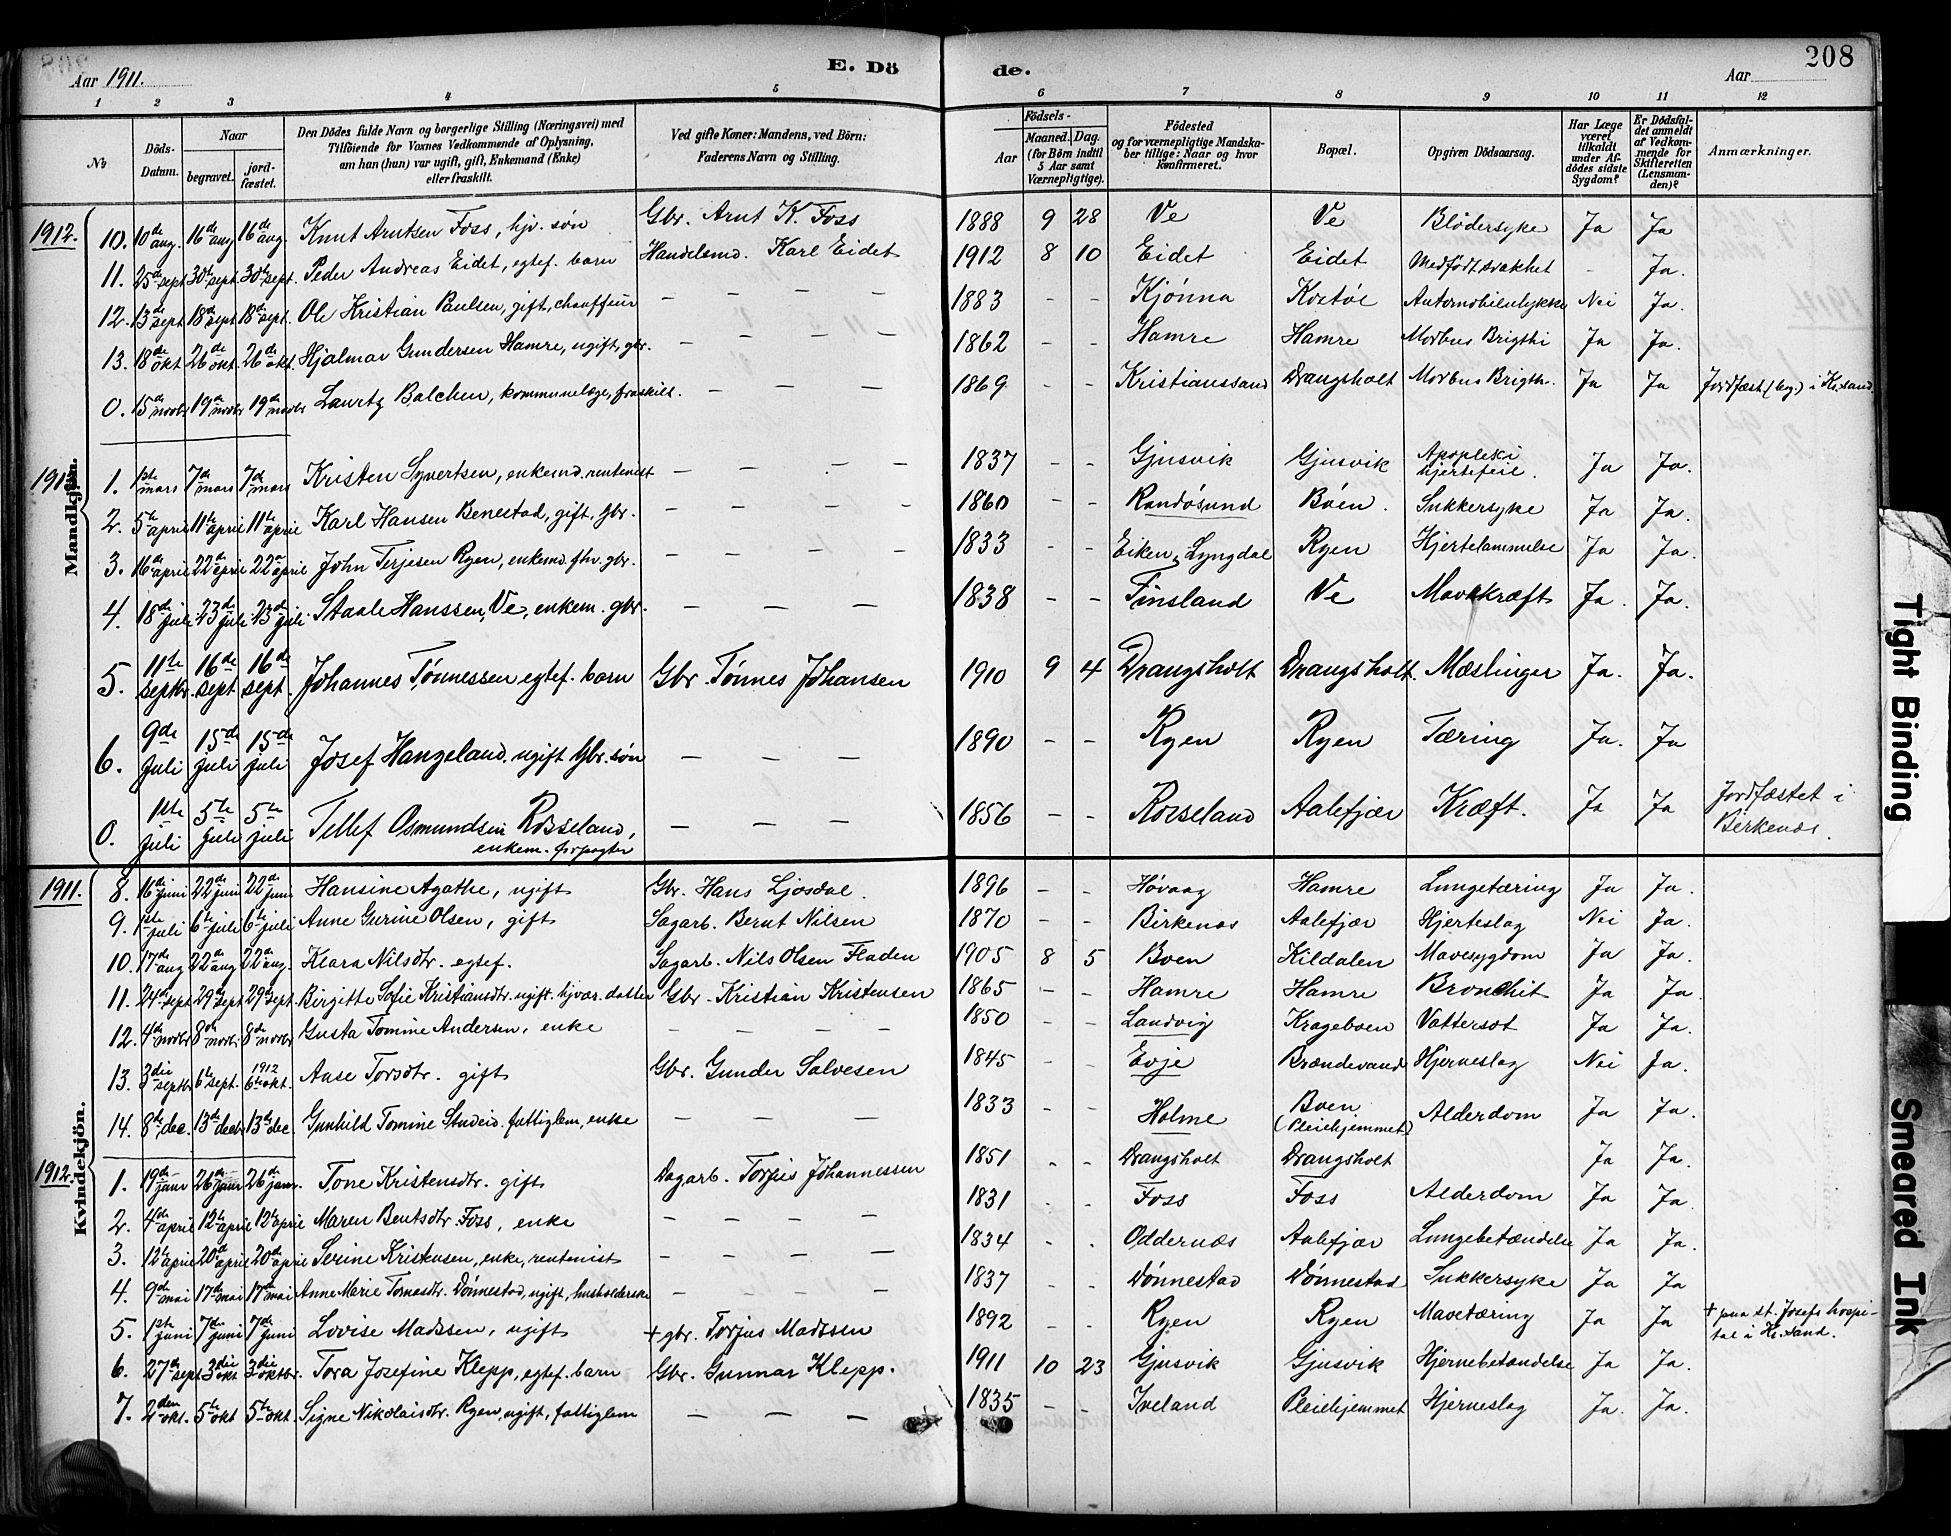 208
Aar 1911.
E. Dö
de.
Aar
1 2 3 4 5 6 7 8 9 10 11 12
No
Döds-Datum.
Naar
begravet.
jord-fæstet.
Den Dödes fulde Navn og borgerlige Stilling (Næringsvei) med
Tilföiende for Voxnes Vedkommende af Oplysning,
om han (hun) var ugift, gift, Enkemand (Enke)
eller fraskilt.
Ved gifte Koner: Mandens, ved Börn:
Faderens Navn og Stilling.
Födsels-
Aar
Maaned. Dag.
(for Börn indtil
5 Aar samt
Værnepligtige).
Födested
og for værnepligtige Mandska-
ber tillige: Naar og hvor
konfirmeret.
Bopæl.
Opgiven Dödsaarsag.
Har Læge
været
tilkaldt
under Af-
dödes sidste
Sygdom?
Er Dödsfal-
det anmeldt
af Vedkom-
mende for
Skifteretten
(Lensman-
den)?
Anmærkninger.
Mandkjön.
1912. 10. 10de aug. 16de aug 16de aug. Knut Arntsen Foss, hjv. søn Gbr. Arnt K. Foss 1888 9 28 Ve Ve Blødersyke Ja Ja
11. 25de sept 30te sept 30te sept. Peder Andreas Eidet, egtef. barn Handelsmd. Karl Eidet 1912 8 10 Eidet Eidet Medfødt svakhet - Ja.
12. 13de sept 18de sept 18de sept. Ole Kristian Paulsen, gift, chauffeur — — — 1883 - - Kjønna Kostøl Automobilulykke Nei Ja.
13. 18de okt 26de okt. 26de okt. Hjalmar Gundersen Hamre, ugift, gbr. — — — 1862 - - Hamre Hamre Morbus Brigthi Ja Ja.
0. 15de novbr 19de novbr 19de novbr Lauritz Balchen, kommunelæge, fraskilt. — — — 1869 - - Kristianssand Drangsholt Morbus Brigth. Ja Ja Jordfæst (beg.) i Kr.sand.
1. 1ste mars 7de mars 7de mars Kristen Syvertsen, enkemd. rentenist — — — 1837 - - Gjusvik Gjusvik Apopleksi hjertefeil. Ja Ja.
2. 5te april 11te april 11te april Karl Hansen Benestad, gift, gbr. — — — 1860 - - Randøsund Bøen. Sukkersyke Ja Ja.
3. 16de april 22de april 22de april John Terjesen Ryen, enkemd. fhv. gbr. — — — 1833 - - Eiken, Lyngdal Ryen Hjertelammelse Ja Ja.
4. 18de juli 23de juli 23de juli Staale Hanssen, Ve, enkem. gbr. — — — 1838 - - Finsland Ve Mavekræft Ja. Ja.
5. 11te septbr 16de sept 16de sept. Johannes Tønnessen egtef. barn Gbr. Tønnes Johansen 1910 9 4 Drangsholt Drangsholt. Mæslinger Ja. Ja.
6. 9de Juli 15de Juli 15de Juli Josef Hangeland. ugift Gbr. søn — — — 1890 - - Ryen Ryen Tæring Ja. Ja
0. 1ste Juli 5te Juli 5te Juli Tellef Osmundsen Rosseland, enkem. forpagter — — — 1856 - - Rosseland Aalefjær Kræft. Ja Ja Jordfæstet i Birkenæs.
Kvindekjön.
1911. 8. 16de juni 22de juni 22de juni Hansine Agathe, ugift Gbr. Hans Ljosdal. 1896 - - Høvaag Hamre Lungetæring Ja Ja.
9. 1ste juli 6te juli 6te juli Anne Gurine Olsen, gift Sagarb. Bernt Nilsen 1870 - - Birkenæs Aalefjær Hjerteslag Nei Ja.
10. 17de aug 22de aug 22de aug. Klara Nilsdtr. egtef. Sagarb. Nils Olsen Fladen 1905 8 5 Boen Kildalen Mavesygdom Ja Ja.
11. 24de sept 29de sept 29de sept. Birgitte Sofie Kristiansdtr. ugift. hjvær. datter Gbr. Kristian Kristensen 1865 - - Hamre Hamre Bronchit Ja Ja.
12. 4de novbr 8de novbr 8de novbr Gusta Tomine Andersen, enke — — — 1850 - - Landvig Krageboen Vattersot Ja Ja.
13. 3die septbr 6te sept. 1912 6te okt. Aase Torsdtr. gift Gbr. Gunder Salvesen 1845 - - Evje Brændevand Hjerneslag Nei Ja.
14. 8de dec. 13de decbr 13de dec. Gunhild Tomine Studeid. fattiglem, enke — — — 1833 - - Holme Boen (Pleiehjemmet) Alderdom Ja Ja.
1912. 1. 19de janr 26de janr 26de janr. Tone Kristensdtr. gift Dagarb. Torjus Johannessen 1851 - - Drangsholt Drangsholt Ja Ja.
2. 4de april 12te april 12te april Maren Bentsdtr. Foss, enke — — — 1831 - - Foss Foss Alderdom Ja Ja.
3. 12te april 20de april 20de april Serine Kristensen, enke, rentenist — — — 1834 - - Oddernæs Aalefjær Lungebetændelse Ja Ja.
4. 9de mai 17de mai 17de mai Anne Marie Tomasdtr. Dønnestad, ugift, husholderske — — — 1837 - - Dønnestad Dønnestad Sukkersyke Ja Ja
5. 1ste juni 7de juni 7de juni Lovise Madssen, ugift + gbr. Torjus Madssen 1892 - - Ryen Ryen Mavetæring Ja Ja + paa St. Josefs hospital i Kr.sand.
6. 27de sept 3die okt 3die oktbr. Tora Josefine Klepp, egtef. barn Gbr. Gunnar Klepp. 1911 10 23 Gjusvik Gjusvik Hjernebetændelse Ja Ja.
7. 2den okt. 5te okt 5te okt. Signe Nikolaisdtr. Ryen, ugift, fattiglem — — — 1835 - - Iveland Pleiehjemmet Hjerneslag Ja. Ja.
Tight Binding
Smeared Ink